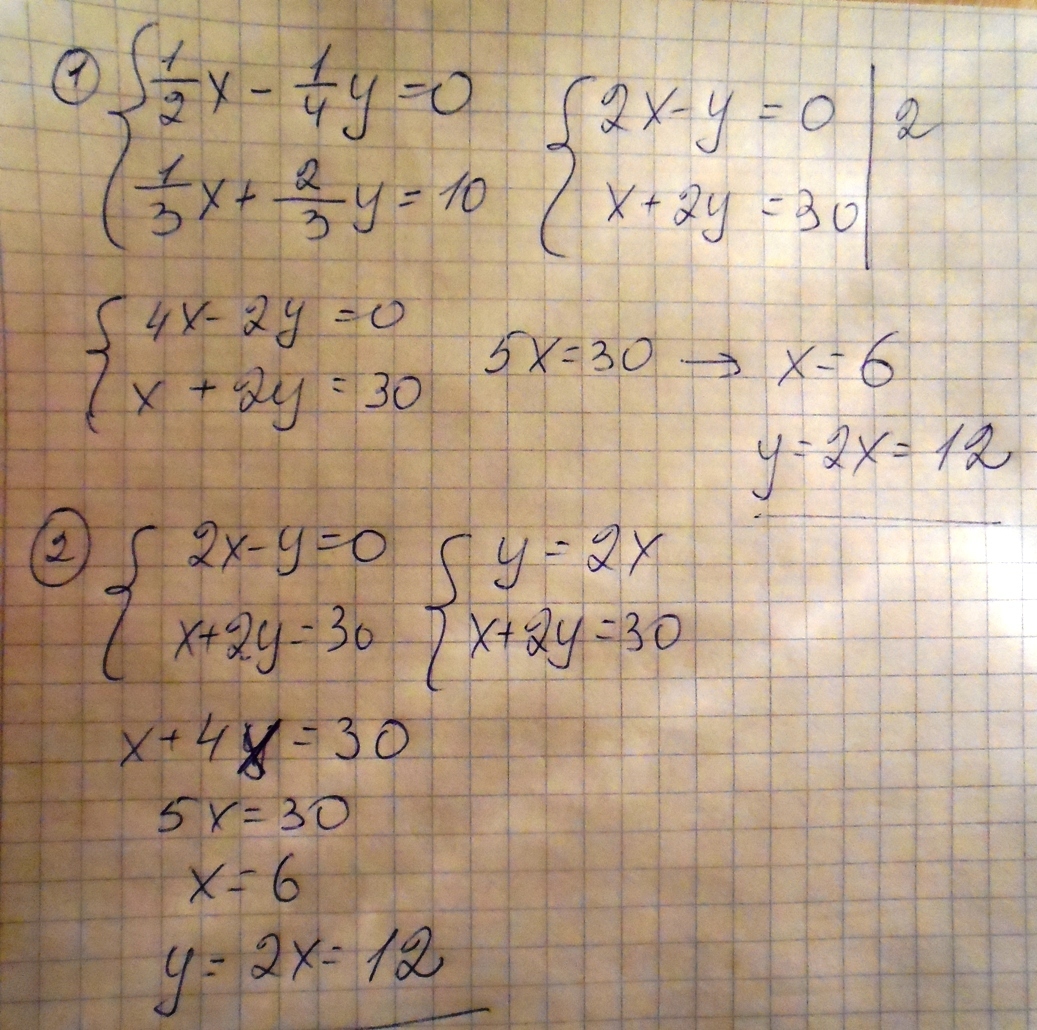 ① { 1/2 x - 1/4 y = 0
1/3 x + 2/3 y = 10
{ 2x - y = 0 | 2
x + 2y = 30 |
{ 4x - 2y = 0
x + 2y = 30
5x = 30 → x = 6
y = 2x = 12
② { 2x - y = 0
x + 2y = 30
{ y = 2x
x + 2y = 30
x + 4x = 30
5x = 30
x = 6
y = 2x = 12